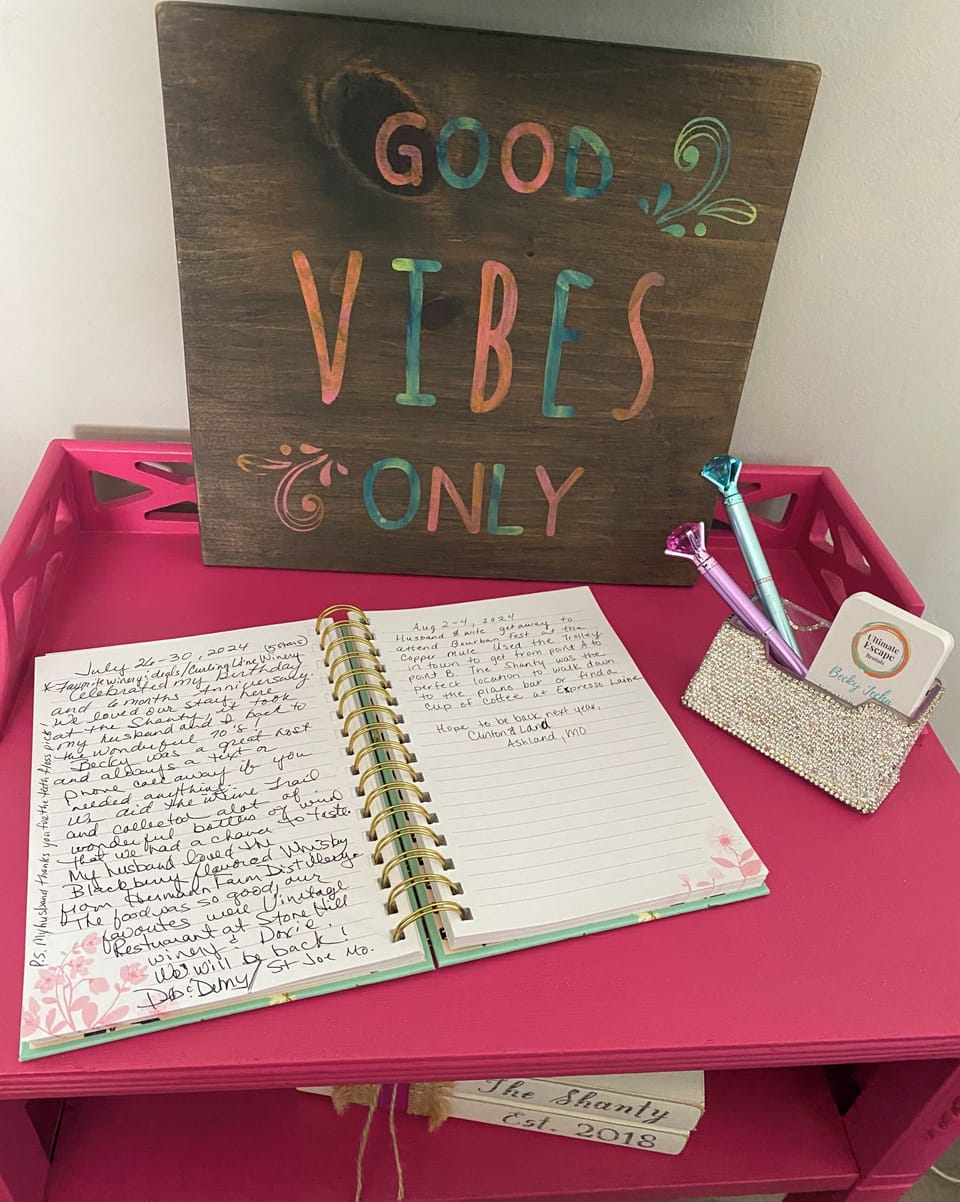 GOOD
VIBES
ONLY
July 26-30, 2024 (5 stars)
* Favorite winery: 
Celebrated my Birthday
and 6 months Anniversary.
We loved our stay here
at the Shanty, it took
my husband and I back to
the wonderful 70's.
Becky was a great host
and always a text or
phone call away if you
needed anything.
We did the wine Trail
and collected a lot of
wonderful bottles of wine
that we had a chance to taste.
My husband loved the
Blackberry flavored Whisky
from Hermann Farm Distillery.
The food was so good, our
favorites were Vintage
Restuarant at Stone Hill
winery &
We will be back!
St Joe Mo.
P.S. My husband thanks you for the
Aug 2-4, 2024
Husband & wife getaway to
attend Bourbon Fest at the
Copper Mule. Used the Trolley
in town to get from point A to
point B. The Shanty was the
perfect location to walk down
to the piano bar or find a
cup of coffee at Express Laine
Hope to be back next year,
Clinton &
Ashland, MO
Ultimate
Escape
Rentals
Becky
The Shanty
Est. 2018